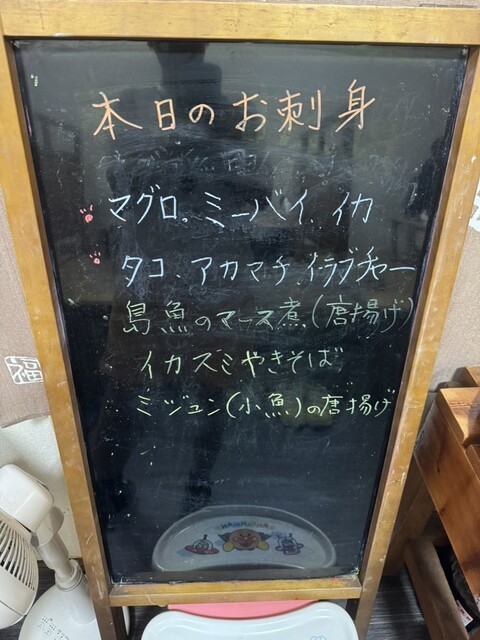 本日のお刺身
マグロ、ミーバイ、イカ
タコ、アカマチ、イラブチャー
島魚のマース煮(唐揚げ)
イカスミやきそば
ミジュン(小魚)の唐揚げ
福